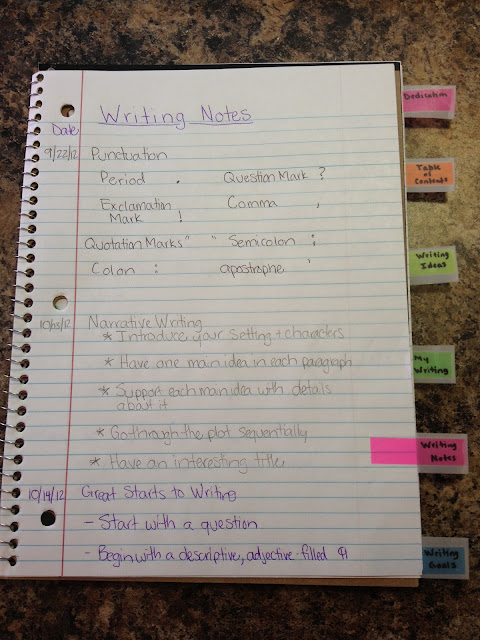 Writing Notes
Date
9/22/12 Punctuation
Period . Question Mark ?
Exclamation Mark ! Comma ,
Quotation Marks " " Semicolon ;
Colon : apostrophe '
10/03/12 Narrative Writing
* Introduce your setting + characters
* Have one main idea in each paragraph
* Support each main idea with details
about it
* Go through the plot sequentially
* Have an interesting title
10/19/12 Great Starts to Writing
- Start with a question
- Begin with a descriptive, adjective-filled
Dedication
Table
of
Contents
Writing
Ideas
My
Writing
Writing
Notes
Writing
Goals